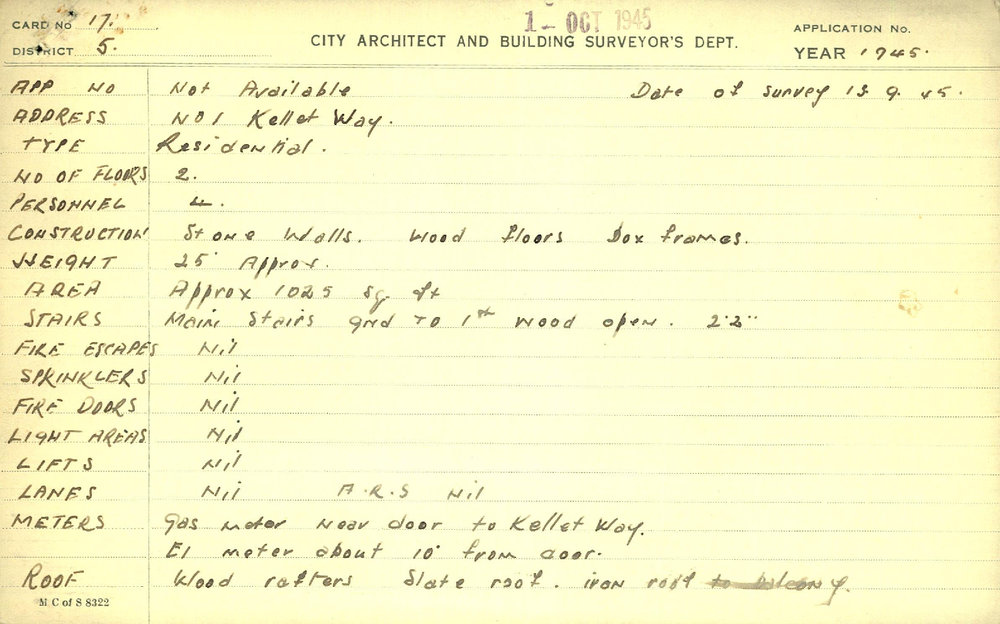 CARD No 17.
1 - OCT 1945
APPLICATION No.
DISTRICT 5.
CITY ARCHITECT AND BUILDING SURVEYOR'S DEPT.
YEAR 1945.
APP NO Not Available Date of survey 13.9.45.
ADDRESS NO 1 Kellet Way.
TYPE Residential.
NO OF FLOORS 2.
PERSONNEL 4.
CONSTRUCTION Stone Walls. Wood floors Box frames.
HEIGHT 25' Approx.
AREA Approx 1025 sq. ft
STAIRS Main Stairs gnd to 1st wood open. 2'2"
FIRE ESCAPES Nil
SPRINKLERS Nil
FIRE DOORS Nil
LIGHT AREAS Nil
LIFTS Nil
LANES Nil A.R.S Nil
METERS Gas meter near door to Kellet Way.
El meter about 10' from door.
ROOF Wood rafters Slate roof. iron roof to balcony.
M C of S 8322